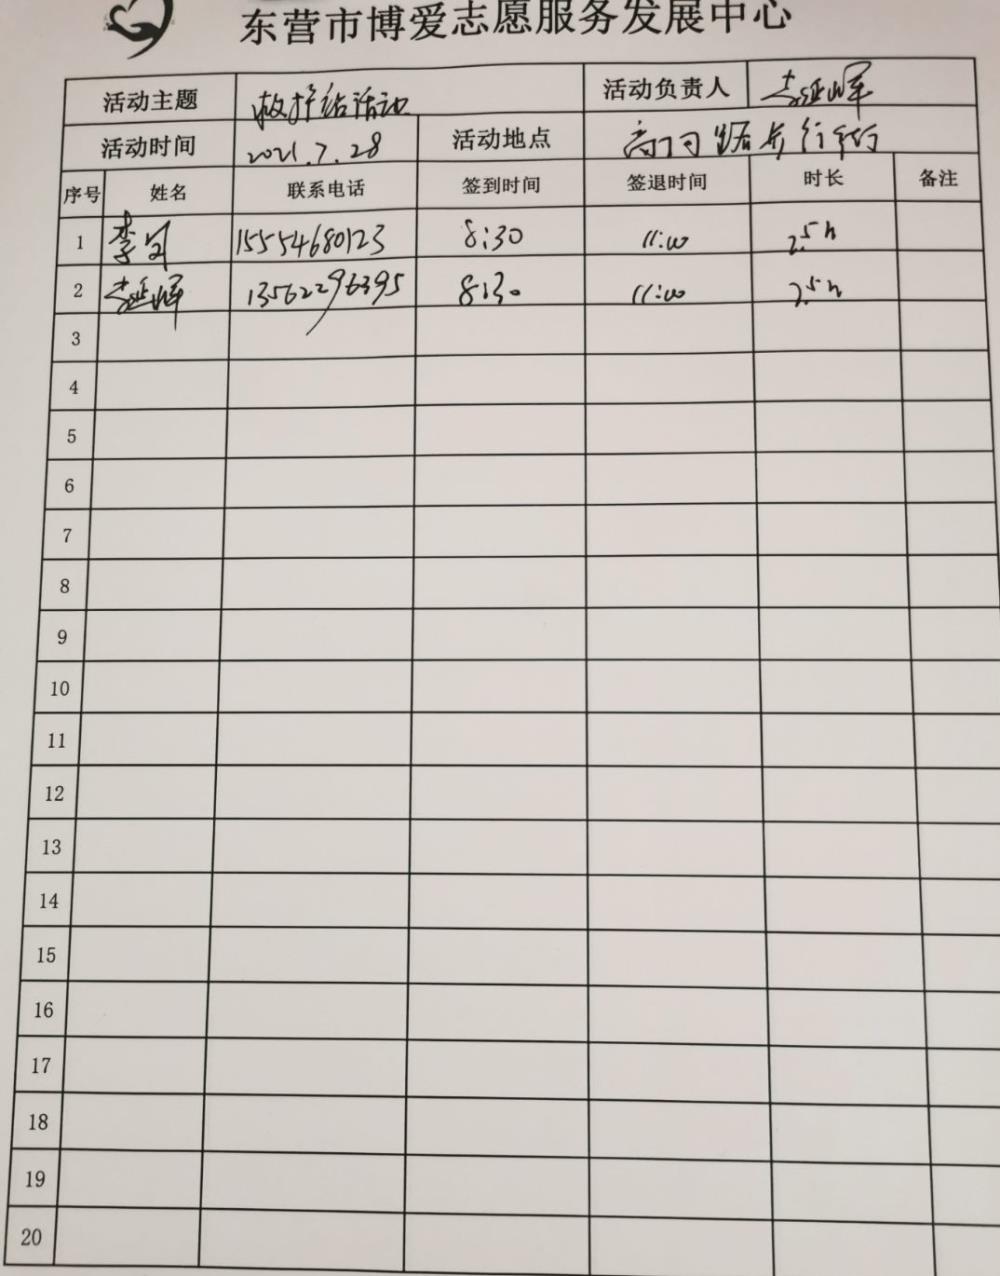 东营市博爱志愿服务发展中心
活动主题 救护站活动 活动负责人 李延峰
活动时间 2021.7.28 活动地点 步行街
序号 姓名 联系电话 签到时间 签退时间 时长 备注
1 李 15554680123 8:30 11:00 2.5h
2 李延峰 13562296395 8:30 11:00 2.5h
3
4
5
6
7
8
9
10
11
12
13
14
15
16
17
18
19
20